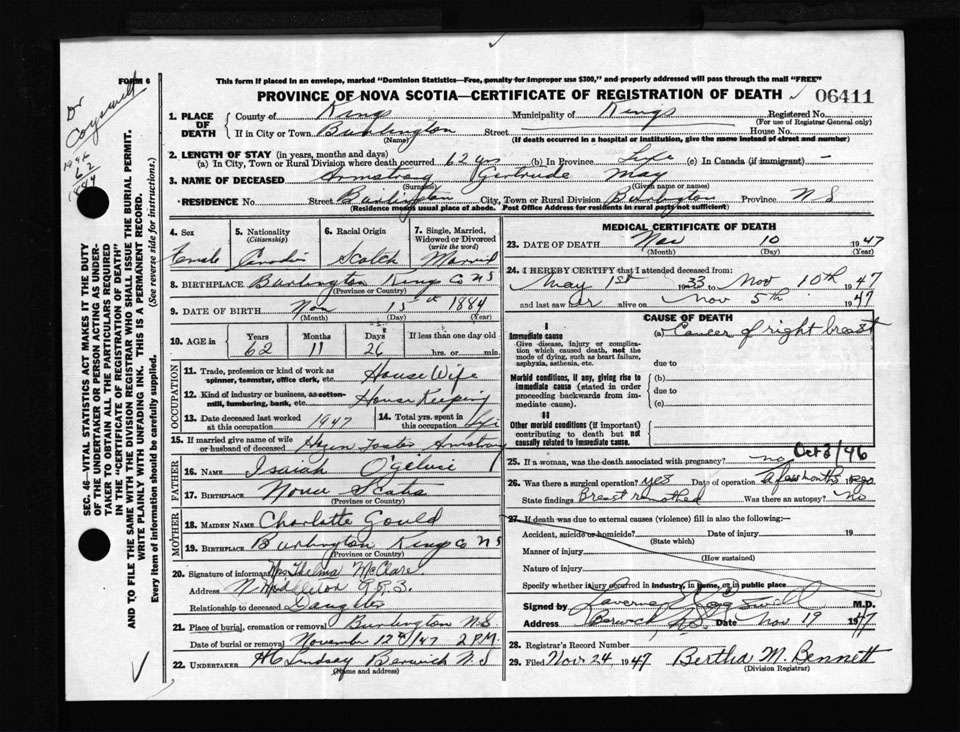 FORM 6
This form if placed in an envelope, marked "Dominion Statistics—Free, penalty for improper use $300," and properly addressed will pass through the mail "FREE"
PROVINCE OF NOVA SCOTIA—CERTIFICATE OF REGISTRATION OF DEATH 06411
1. PLACE OF DEATH County of Kings Municipality of Kings Registered No.
(For use of Registrar General only)
If in City or Town Burlington Street House No.
(Name) (If death occurred in a hospital or institution, give the name instead of street and number)
2. LENGTH OF STAY (in years, months and days)
(a) In City, Town or Rural Division where death occurred 62 yrs (b) In Province Life (c) In Canada (if immigrant) —
3. NAME OF DECEASED Armstrong Gertrude May
(Surname) (Given name or names)
RESIDENCE No. Street Burlington City, Town or Rural Division Burlington Province N S
(Residence means usual place of abode. Post Office Address for residents in rural parts not sufficient)
4. Sex Female
5. Nationality (Citizenship) Canadian
6. Racial Origin Scotch
7. Single, Married, Widowed or Divorced (write the word) Married
8. BIRTHPLACE Burlington Kings Co N S
(Province or Country)
9. DATE OF BIRTH Nov 15th 1884
(Month) (Day) (Year)
10. AGE in Years 62 Months 11 Days 26 If less than one day old hrs. or min.
OCCUPATION
11. Trade, profession or kind of work as spinner, teamster, office clerk, etc. House Wife
12. Kind of industry or business, as cotton-mill, lumbering, bank, etc. House Keeping
13. Date deceased last worked at this occupation 1947
14. Total yrs. spent in this occupation
15. If married give name of wife or husband of deceased Foster Armstrong
FATHER
16. NAME Isaiah Ogilvie
17. BIRTHPLACE Nova Scotia
(Province or Country)
MOTHER
18. MAIDEN NAME Charlotte Gould
19. BIRTHPLACE Burlington Kings Co N S
(Province or Country)
20. Signature of informant Mrs Thelma McClare.
Address N. Middleton R.R.3.
Relationship to deceased Daughter
21. Place of burial, cremation or removal Burlington N.S.
Date of burial or removal November 12th/47 2 P.M.
22. UNDERTAKER Lindsay Berwick N.S
(Name and address)
MEDICAL CERTIFICATE OF DEATH
23. DATE OF DEATH Nov 10 1947
(Month) (Day) (Year)
24. I HEREBY CERTIFY that I attended deceased from:
May 1st 1933 to Nov 10th 1947
and last saw her alive on Nov 5th 1947
CAUSE OF DEATH
I
Immediate cause
Give disease, injury or complication which caused death, not the mode of dying, such as heart failure, asphyxia, asthenia, etc.
(a) Cancer of right breast
due to
Morbid conditions, if any, giving rise to immediate cause (stated in order proceeding backwards from immediate cause).
(b)
due to
(c)
II
Other morbid conditions (if important) contributing to death but not causally related to immediate cause.
25. If a woman, was the death associated with pregnancy? no Oct 2/46
26. Was there a surgical operation? yes Date of operation a few months ago
State findings Breast removed Was there an autopsy? No
27. If death was due to external causes (violence) fill in also the following:—
Accident, suicide or homicide? Date of injury 19
(State which)
Manner of injury
(How sustained)
Nature of injury
Specify whether injury occurred in industry, in home, or in public place
Signed by M.D.
Address Berwick N.S. Date Nov 19 1947
28. Registrar's Record Number
29. Filed Nov. 24 1947 Bertha M. Bennett
(Division Registrar)
SEC. 46—VITAL STATISTICS ACT MAKES IT THE DUTY
OF THE UNDERTAKER OR PERSON ACTING AS UNDERTAKER TO OBTAIN ALL THE PARTICULARS REQUIRED
IN THE "CERTIFICATE OF REGISTRATION OF DEATH"
AND TO FILE THE SAME WITH THE DIVISION REGISTRAR WHO SHALL ISSUE THE BURIAL PERMIT.
WRITE PLAINLY WITH UNFADING INK. THIS IS A PERMANENT RECORD.
Every item of information should be carefully supplied. (See reverse side for instructions).
Dr
1946
62
1884